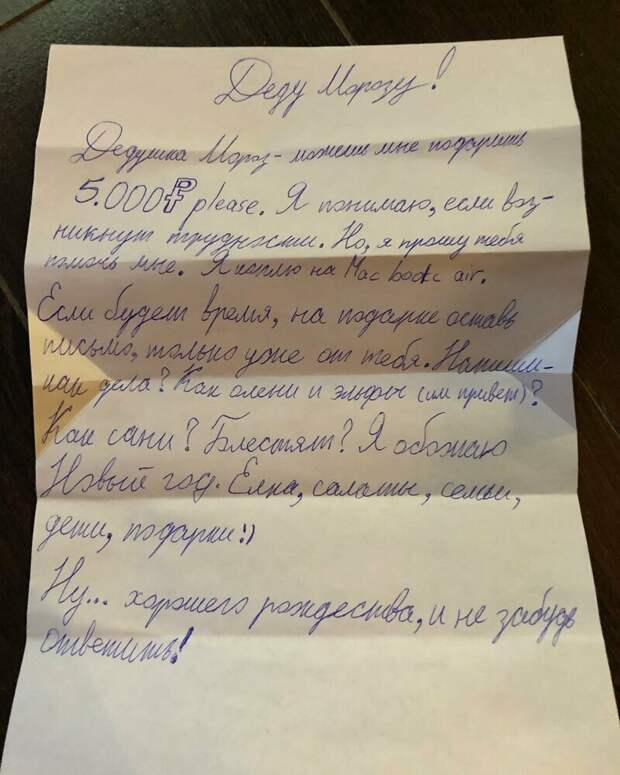 Деду Морозу!
Дедушка Мороз - можешь мне подарить
5.000₽ please. Я понимаю, если воз-
никнут трудности. Но, я прошу тебя
помочь мне. Я коплю на Mac book air.
Если будет время, на подарке оставь
письмо, только уже от тебя. Напиши-
как дела? Как олени и эльфы (им привет)?
Как сани? Блестят? Я обожаю
Новый год. Елка, салаты, семьи,
дети, подарки!)
Ну... хорошего рождества, и не забудь
ответить!